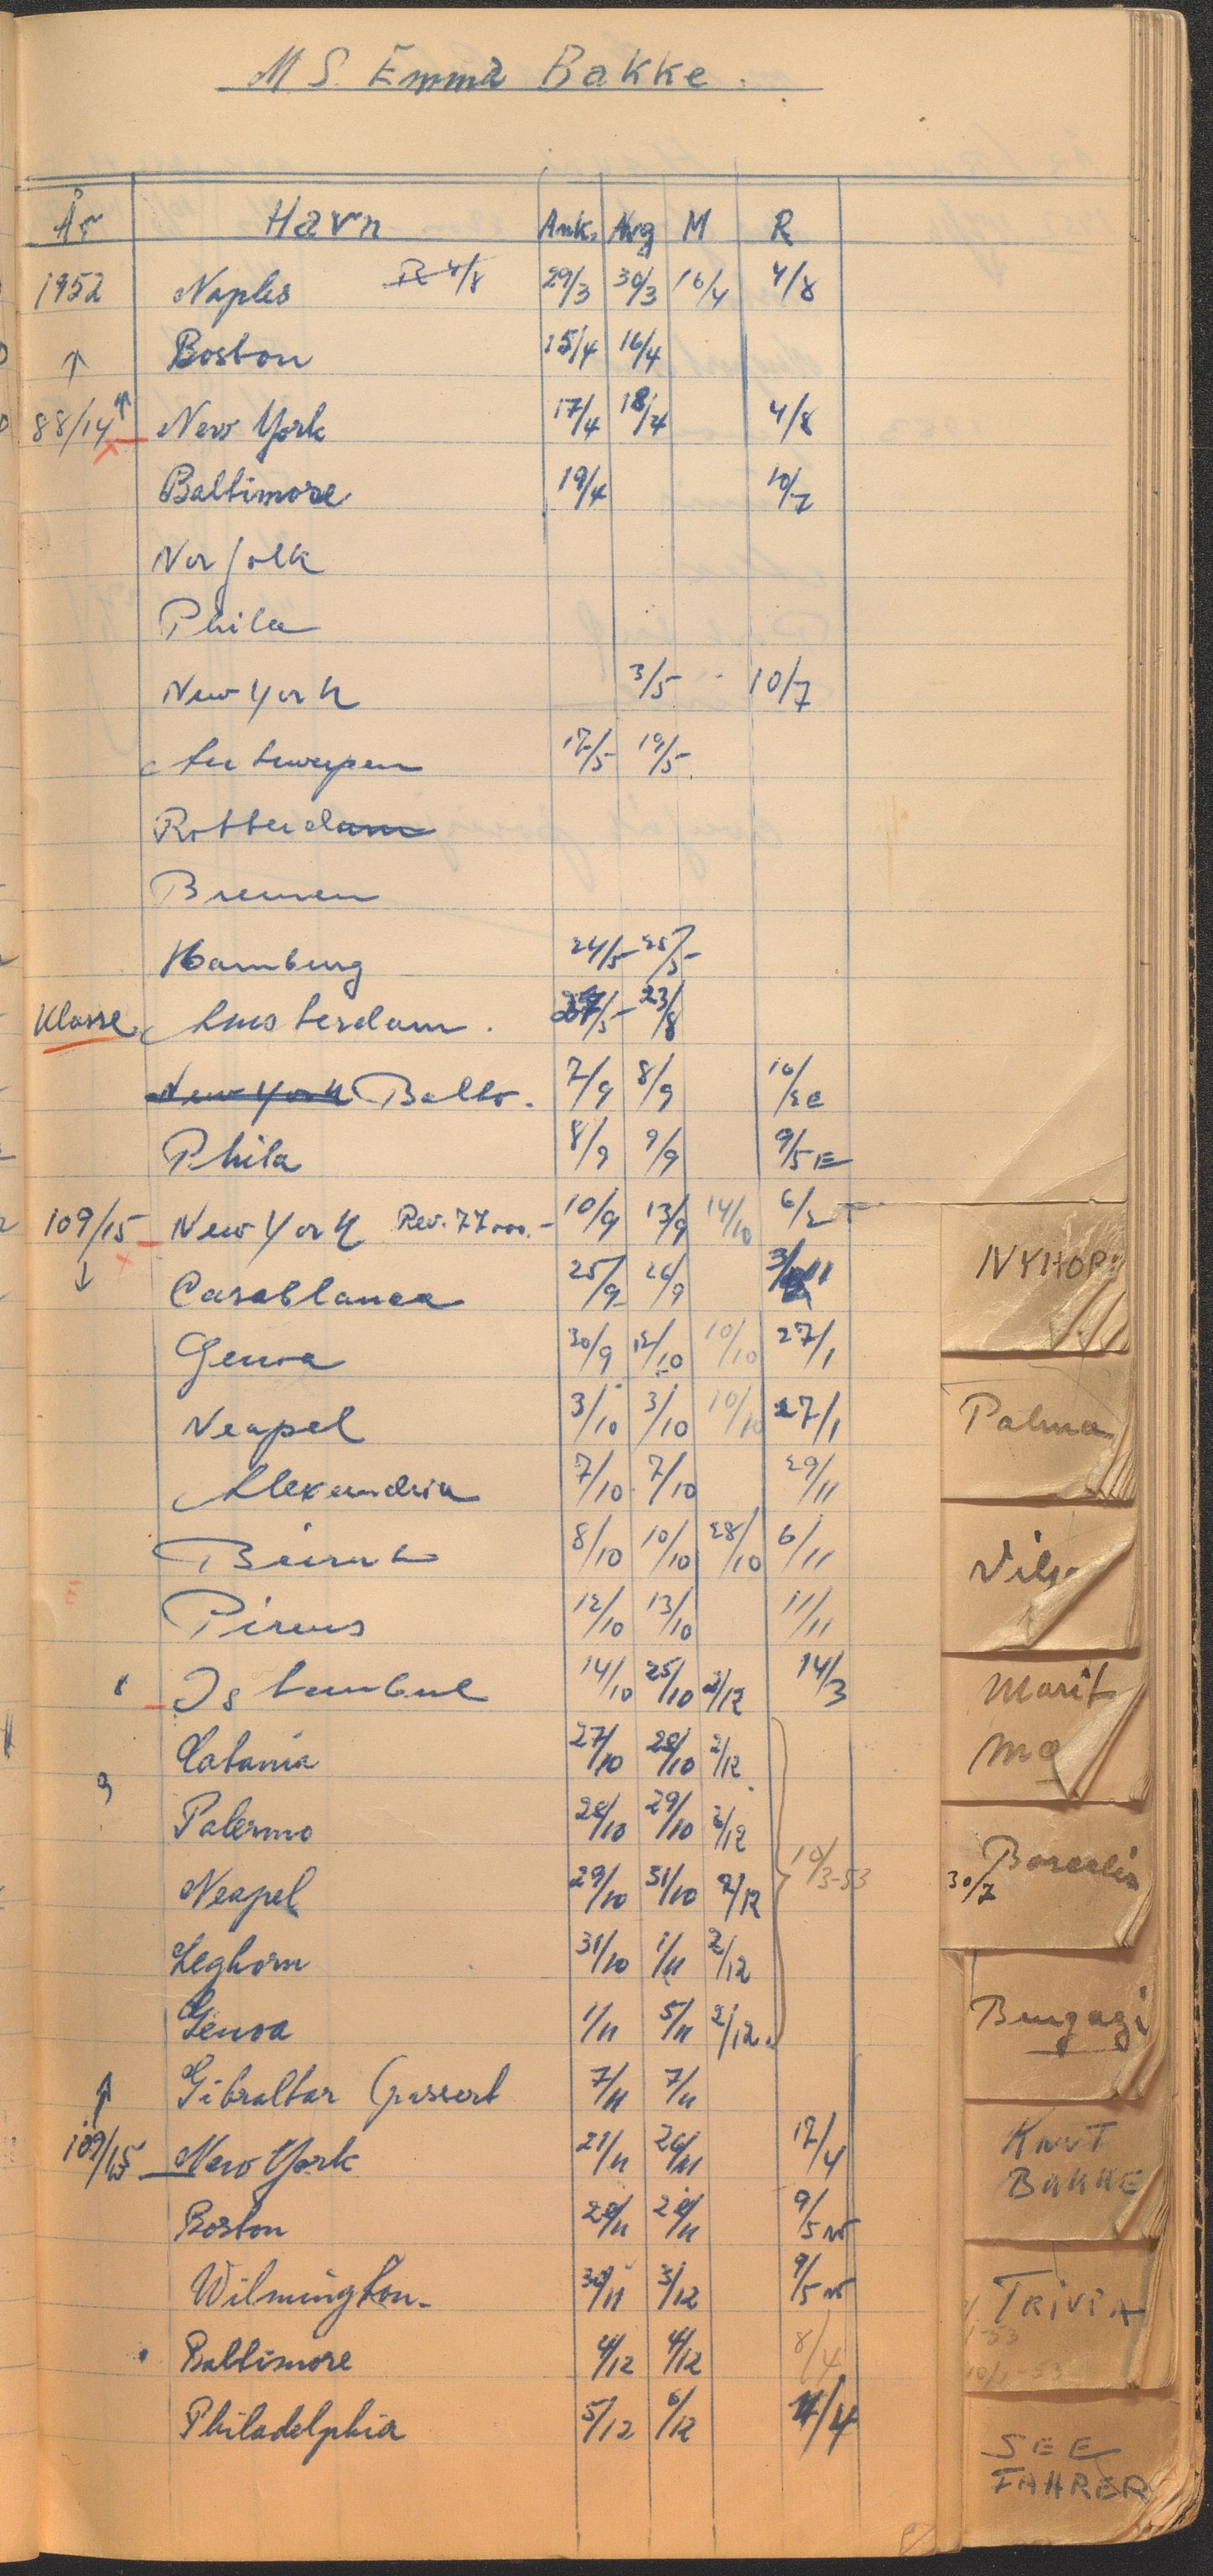 M S. Emma Bakke.
År Havn Ank. Avg M R
1952 Naples R 4/8 29/3 30/3 16/4 4/8
Boston 15/4 16/4
88/14 New York 17/4 18/4 4/8
Baltimore 19/4 10/7
Norfolk
Phila
New York 3/5 10/7
Antwerpen 17/5 19/5
Rotterdam
Bremen
Hamburg 24/5 25/5
Klasse Amsterdam. 23/8
New York Balto. 7/9 8/9
Phila 8/9 9/9 9/5 E
109/15 New York Rev. 77000.- 10/9 13/9 14/10 6/2
Casablanca 25/9 26/9
Genoa 30/9 12/10 10/10 27/1
Neapel 3/10 3/10 10/10 27/1
Alexandria 7/10 7/10 29/11
Beirut 8/10 10/10 28/10 6/11
Pireus 12/10 13/10 11/11
8 Istambul 14/10 25/10 2/12 14/3
Catania 27/10 28/10 2/12
9 Palermo 28/10 29/10 2/12
Neapel 29/10 31/10 2/12 10/3-53
Leghorn 31/10 1/11 2/12
Genoa 1/11 5/11 2/12
Gibraltar (passert 7/11 7/11
109/15 New York 21/11 26/11 17/4
Boston 28/11 28/11 9/5
Wilmington 30/11 3/12 9/5
Baltimore 4/12 4/12 8/4
Philadelphia 5/12 6/12 4/4
NYHOR
Palma
Marit
Ma
30/7
Bengazi
KNUT
BAKKE
TRIVIA
10/1-53
SEE
FAHRER